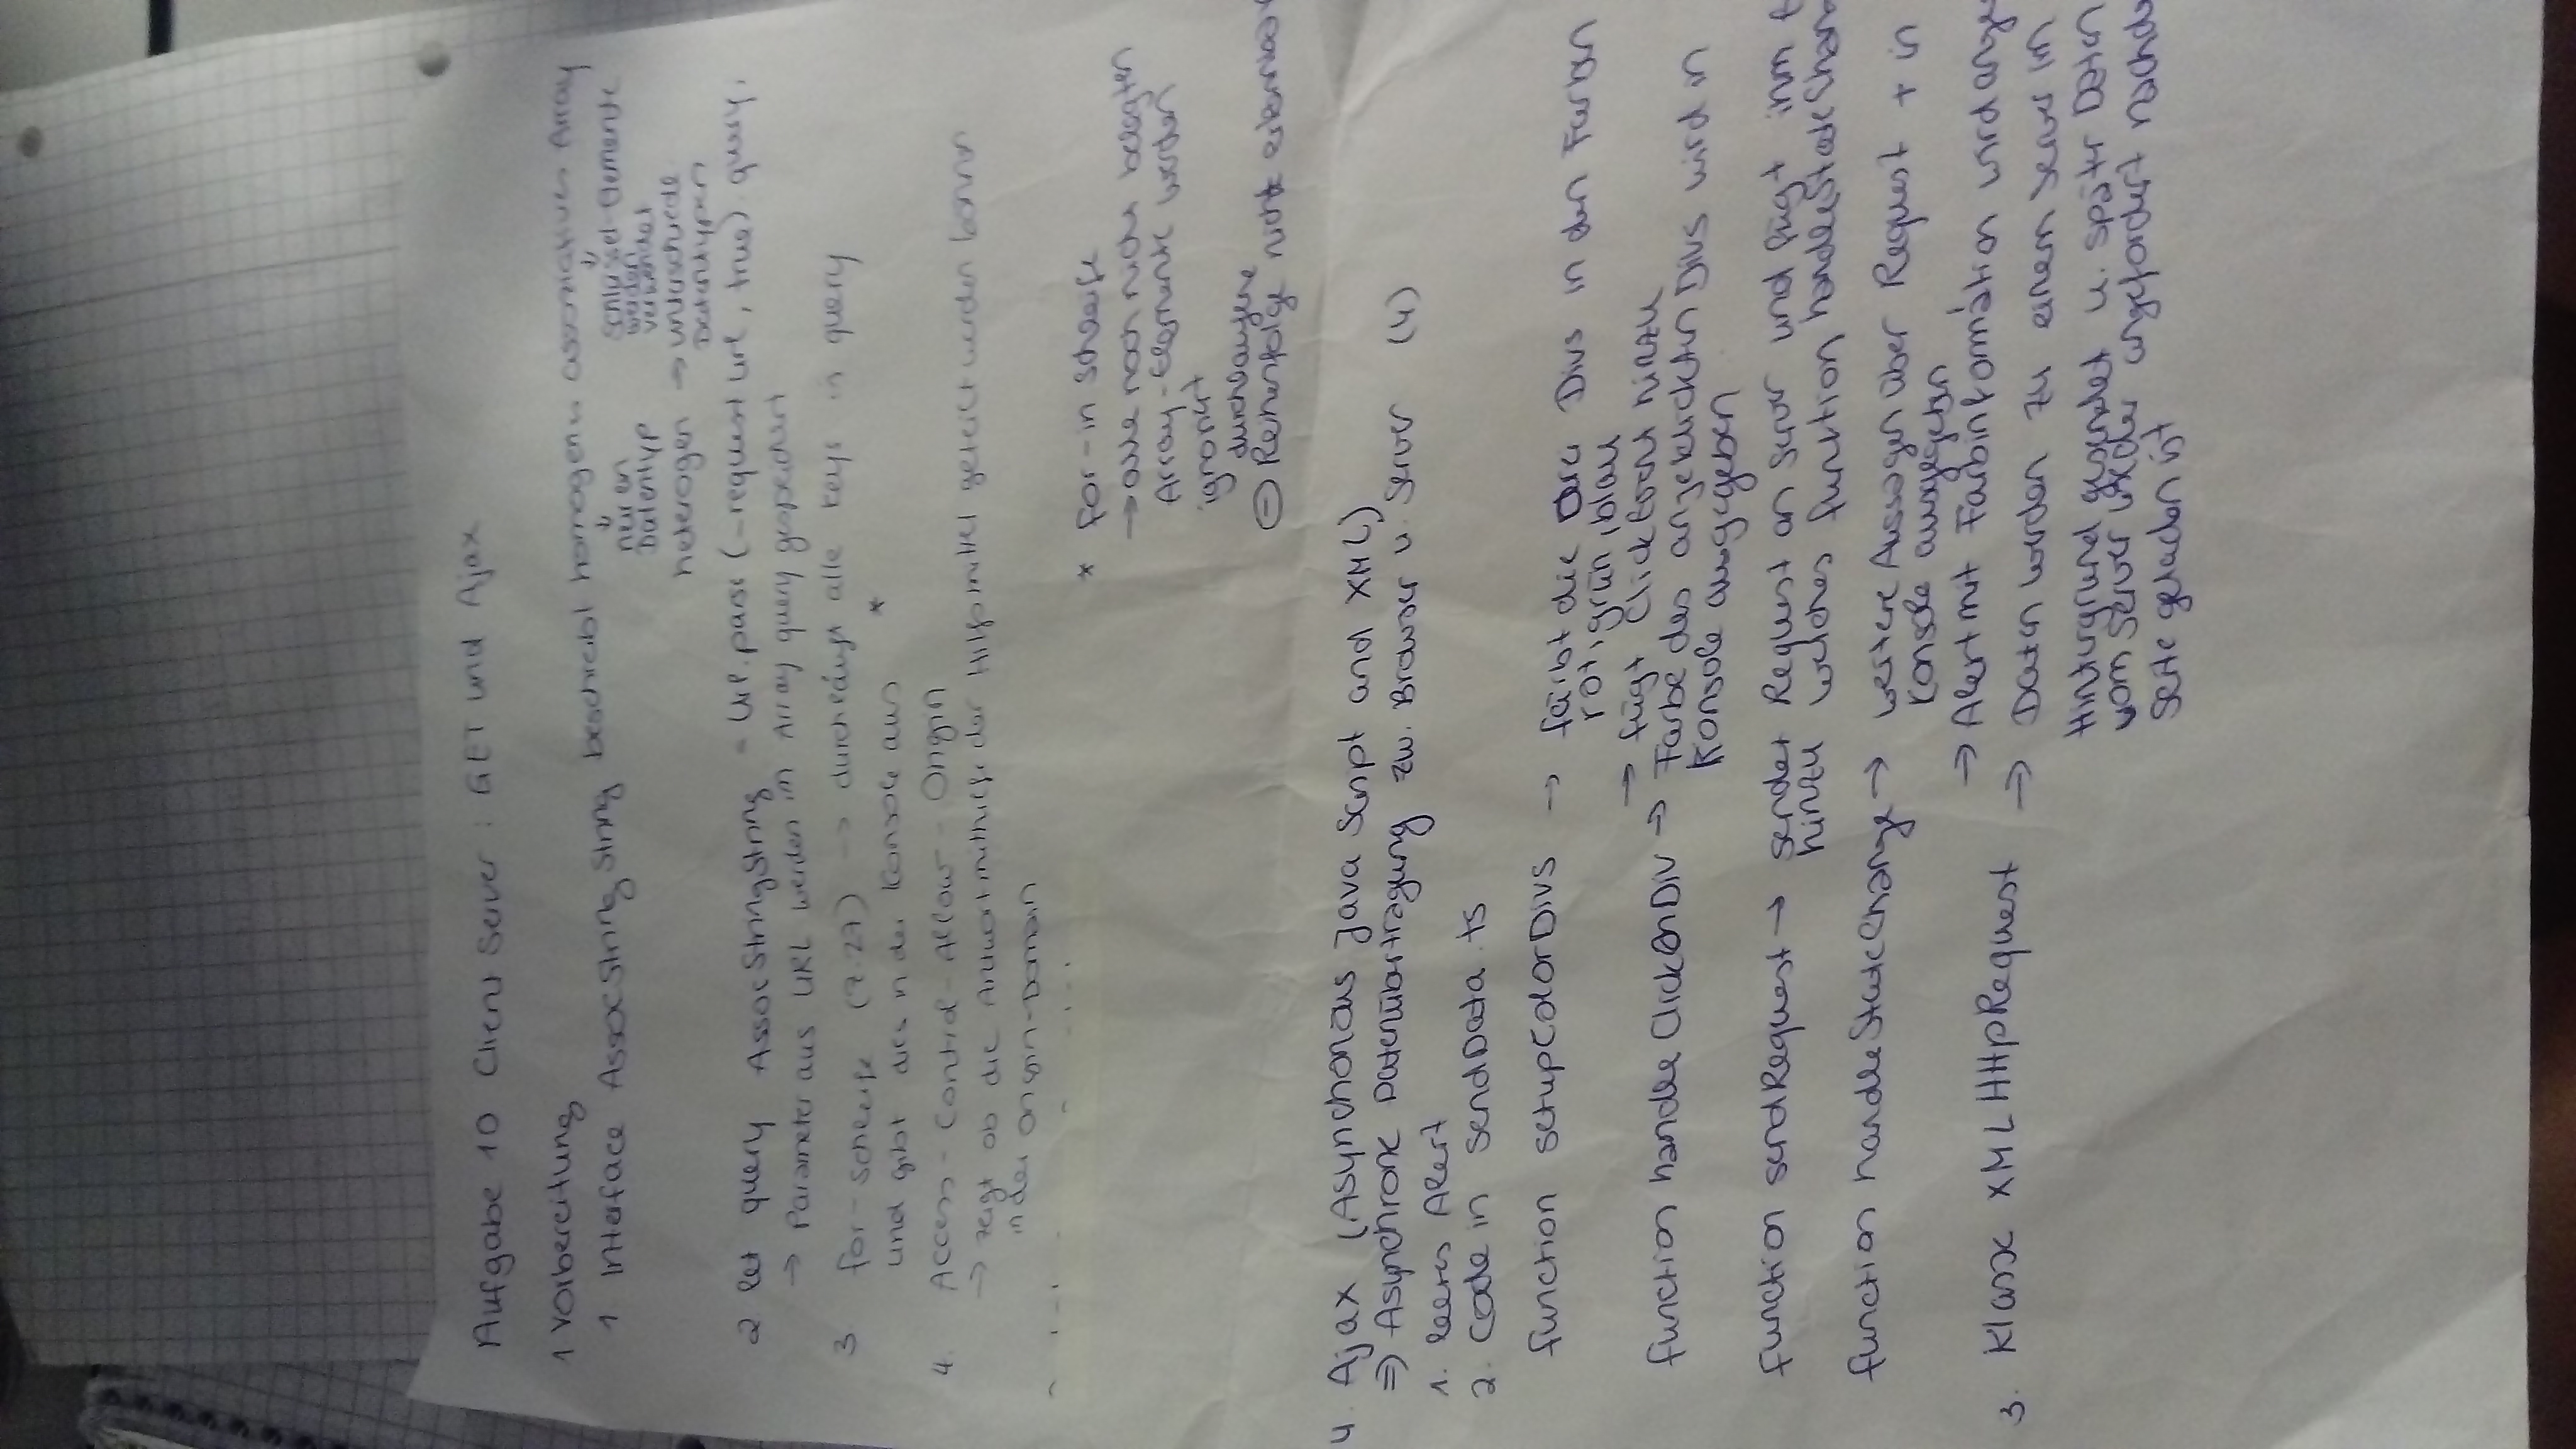 Aufgabe 10 Client Server : GET und Ajax
1 Vorbereitung
1 Interface AssocStringString beschreibt homogenes assoziatives Array
↓ nur ein Datentyp
↓ Schlüssel-Elemente werden verwendet
heterogen → unterschiedl. Datentypen
2 let query AssocStringString = Url.parse (_request.url, true).query;
→ Parameter aus URL werden im Array query gespeichert
3 for-schleife (Z.27) → durchläuft alle keys in query
und gibt dies in der Konsole aus *
4. Access-Control-Allow-Origin
→ zeigt ob die Antwort mithilfe der Hilfsmittel geteilt werden können
in der Origin-Domain
* for-in Schleife
→ alle noch nicht belegten
Array-Elemente werden
ignoriert
durchlaufene
⊖ Reihenfolge nicht erkennbar
4. Ajax (Asynchonous Java Script and XML)
⇒ Asynchrone Datenübertragung zw. Browser u. Server (4)
1. leeres Alert
2. Code in sendData.ts
function setupColorDivs → färbt die drei Divs in den Farben
rot, grün, blau
→ fügt ClickEvent hinzu
function handleClickOnDiv → Farbe des angeklickten Divs wird in
Konsole ausgegeben
function sendRequest → sendet Request an Server und fügt ihm E
hinzu welches function handleStateChan
function handleStateChange → weitere Aussagen über Request + in
Konsole ausgegeben
→ Alert mit Farbinformation wird ange
3. Klasse XMLHttpRequest → Daten werden zu einem Server im
Hintergrund gesendet u. später Daten
vom Server wieder angefordert nachde
Seite geladen ist